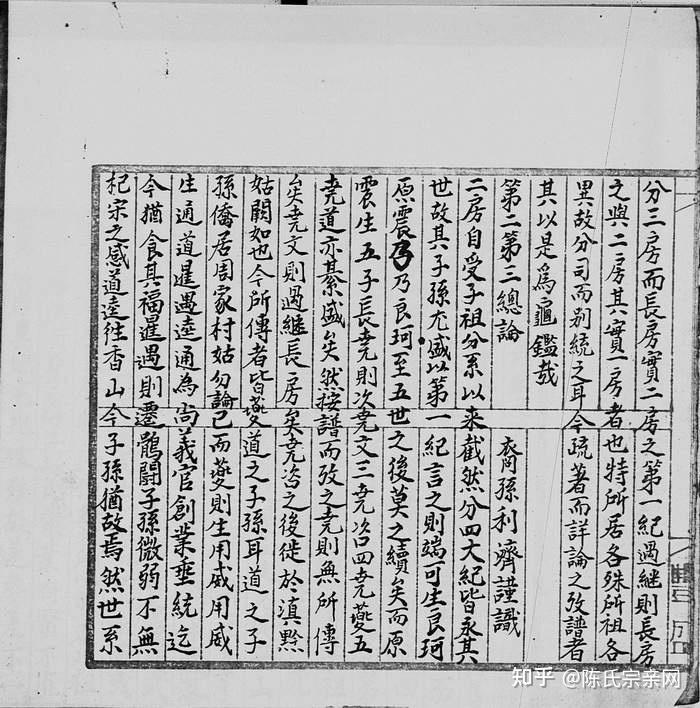 分三房而長房實二房之第一紀過継則長房
之與二房其實一房者也特所居各殊所祖各
異故分司而别統之耳今疏著而詳論之攷譜者
其以是為龜鑑哉
裔孫利濟謹識
第二第三總論
二房自受子祖分系以來截然分四大紀皆永其
世故其子孫尤盛以第一紀言之則端可生良珂
原震乃乃良珂至五世之後莫之續矣而原
震生五子長尭則次尭文三尭咨四尭夔五
尭道亦綦盛矣然按譜而攷之尭則無所傳
矣尭文則過継長房矣尭咨之後徙於滇黔
姑闕如也今所傳者皆夔道之子孫耳道之子
孫僑居周家村姑勿論已而夔則生用威用威
生通道暹遇逵通為尚義官創業垂統迄
今猶食其福進遇則遷鵲鬪子孫微弱不無
杞宋之感道逵往香山今子孫猶故焉然世系
知乎 @陈氏宗亲网